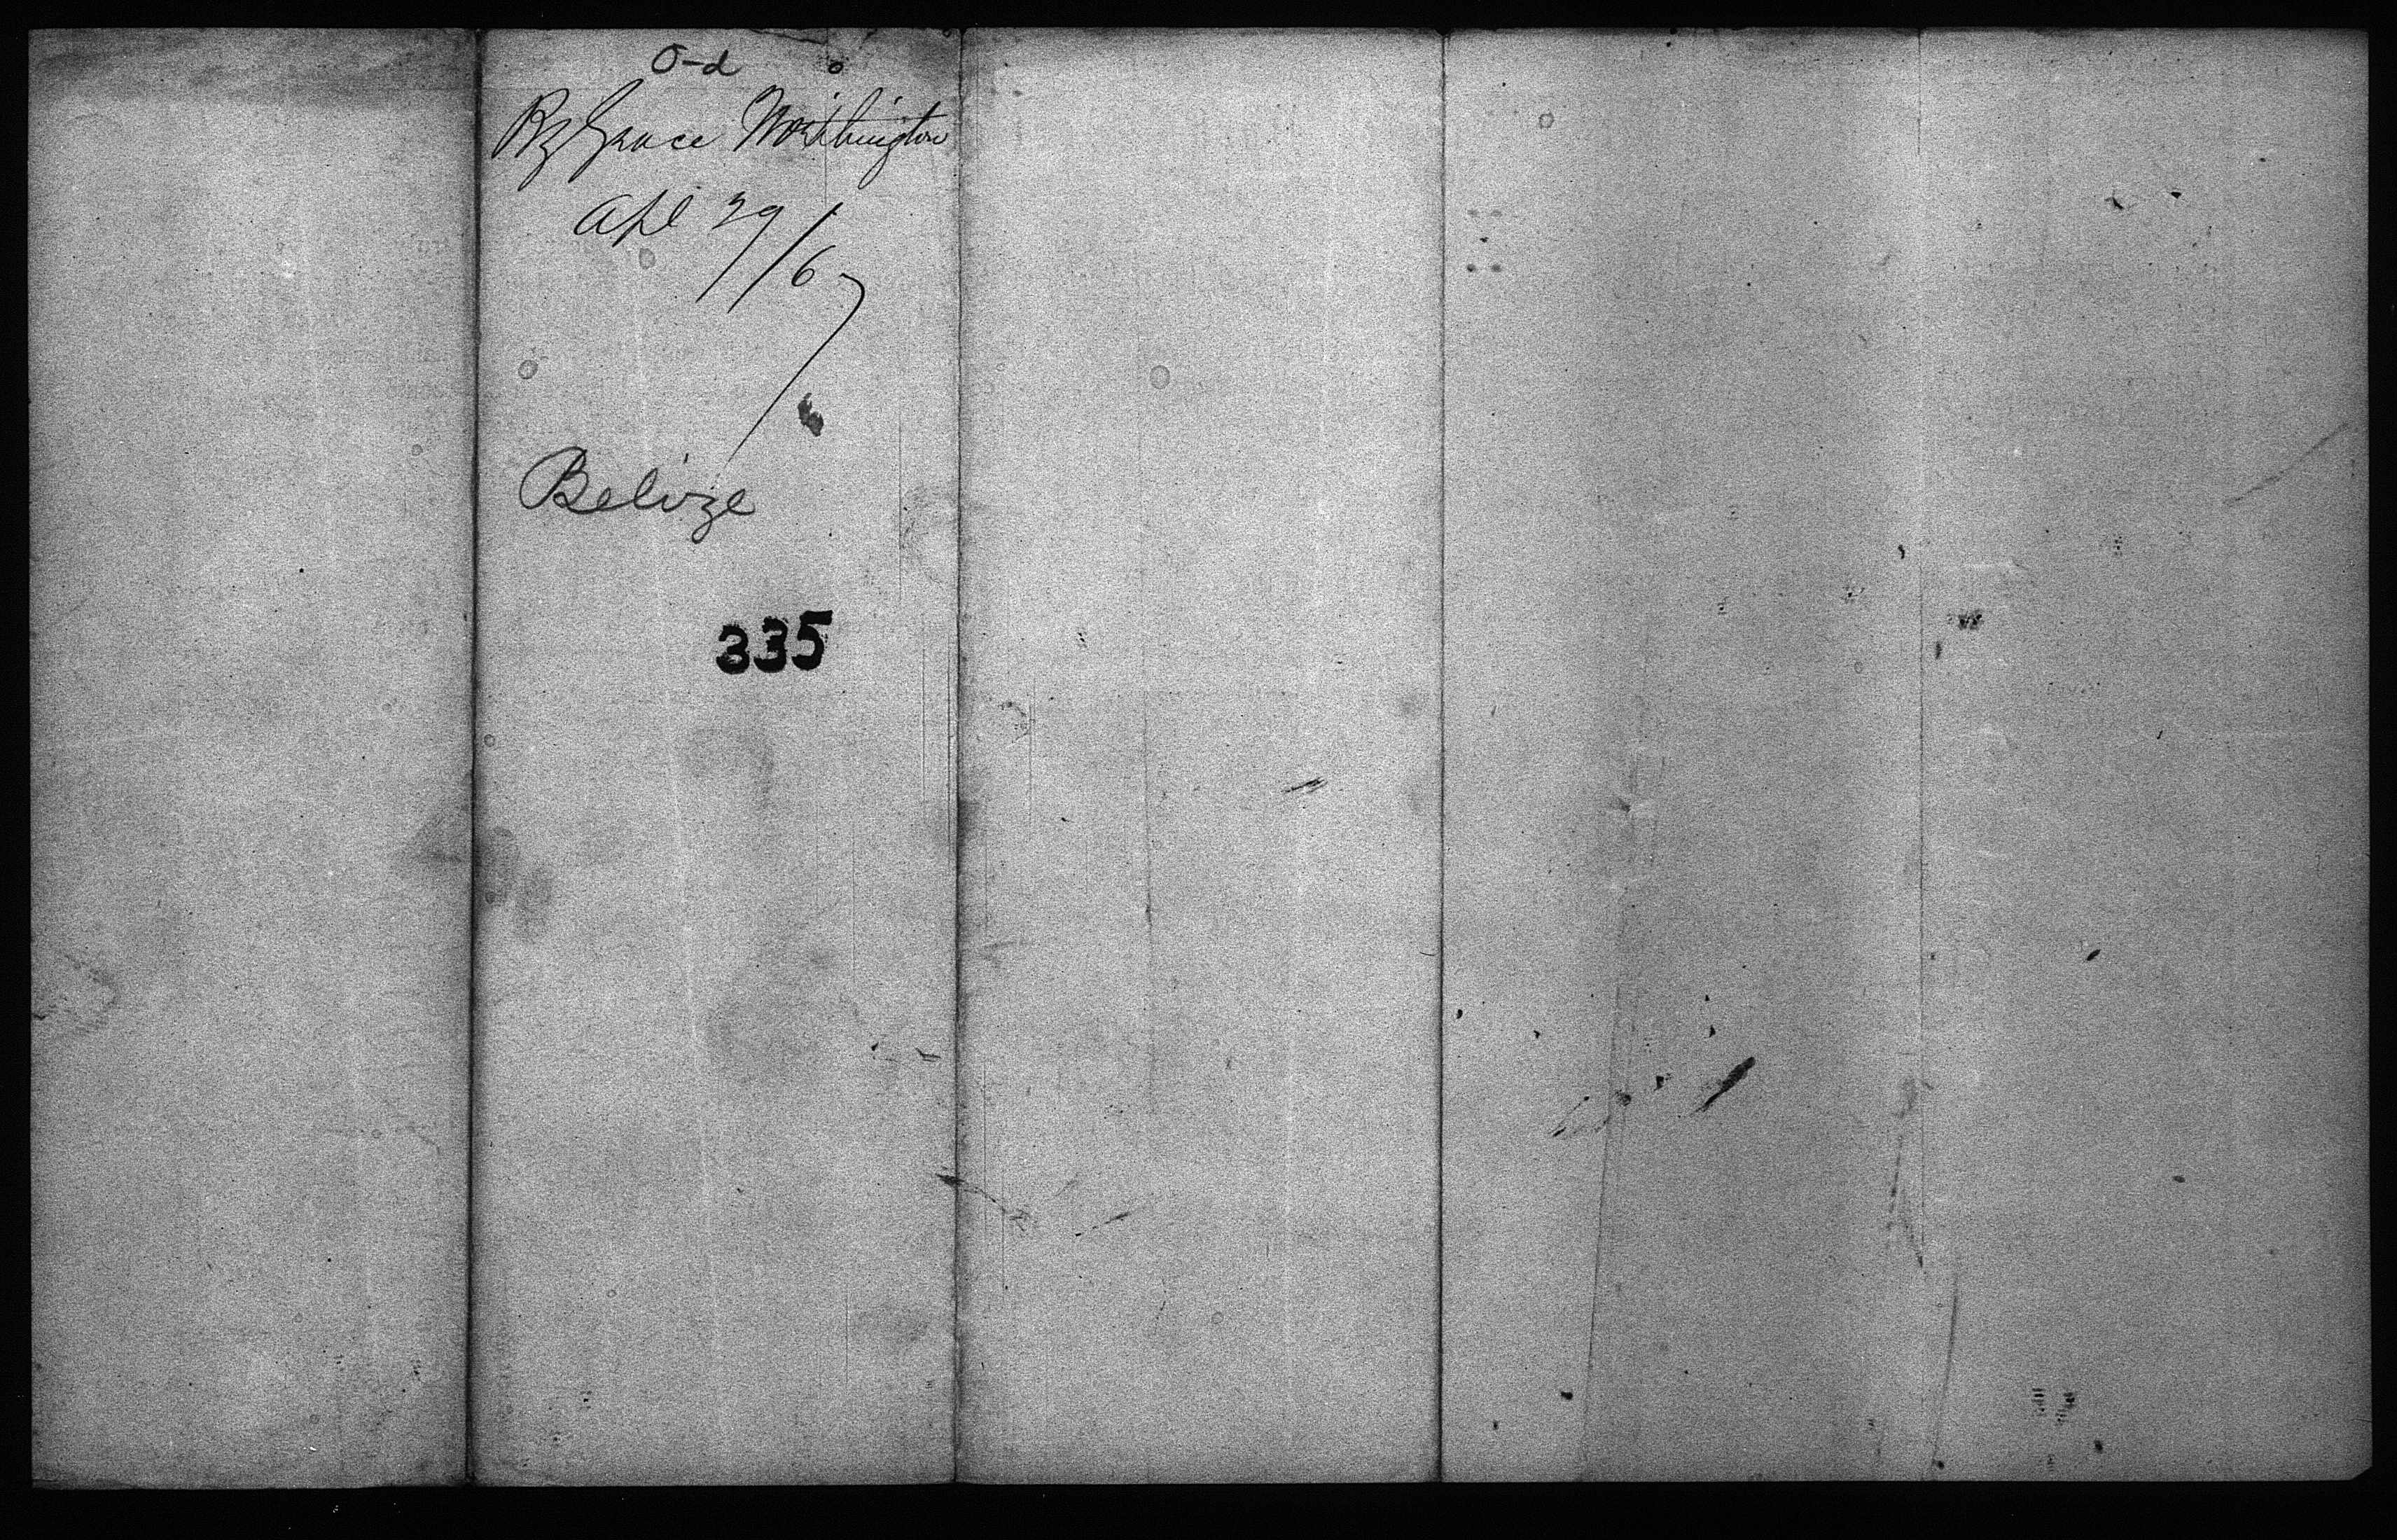 O-d
Bg Grace Worthington
Apl 29/67
Belize
335